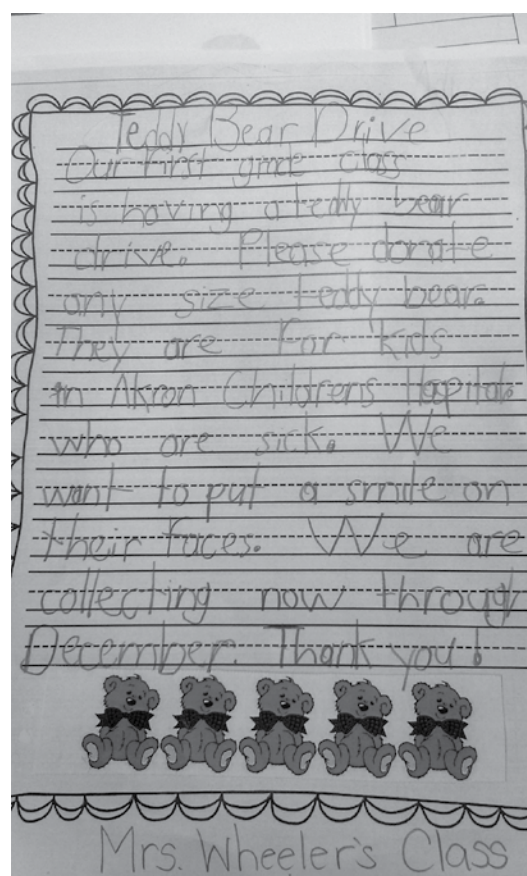 Teddy Bear Drive
Our First grade class
is having a teddy bear
drive. Please donate
any size teddy bear.
They are For kids
in Akron Childrens Hospital.
who are sick. We
want to put a smile on
their faces. We are
collecting now through
December. Thank you!
Mrs. Wheeler's Class